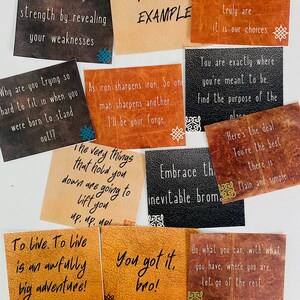 strength by revealing
your weaknesses
EXAMPLE
truly are
it is our choices.
Why are you trying so
hard to fit in when you
were born to stand
out!?
As iron sharpens iron, So one
man sharpens another.
I'll be your forge.
You are exactly where
you're meant to be.
Find the purpose of the
Here's the deal
You're the best
there is.
Plain and simple
The very things
that hold you
down are going to
lift you
up, up, up!
Embrace the
inevitable brom
To live. To live
is an awfully
big adventure!
You got it,
bro!
Do what you can, with what
you have, where you are.
let go of the rest.